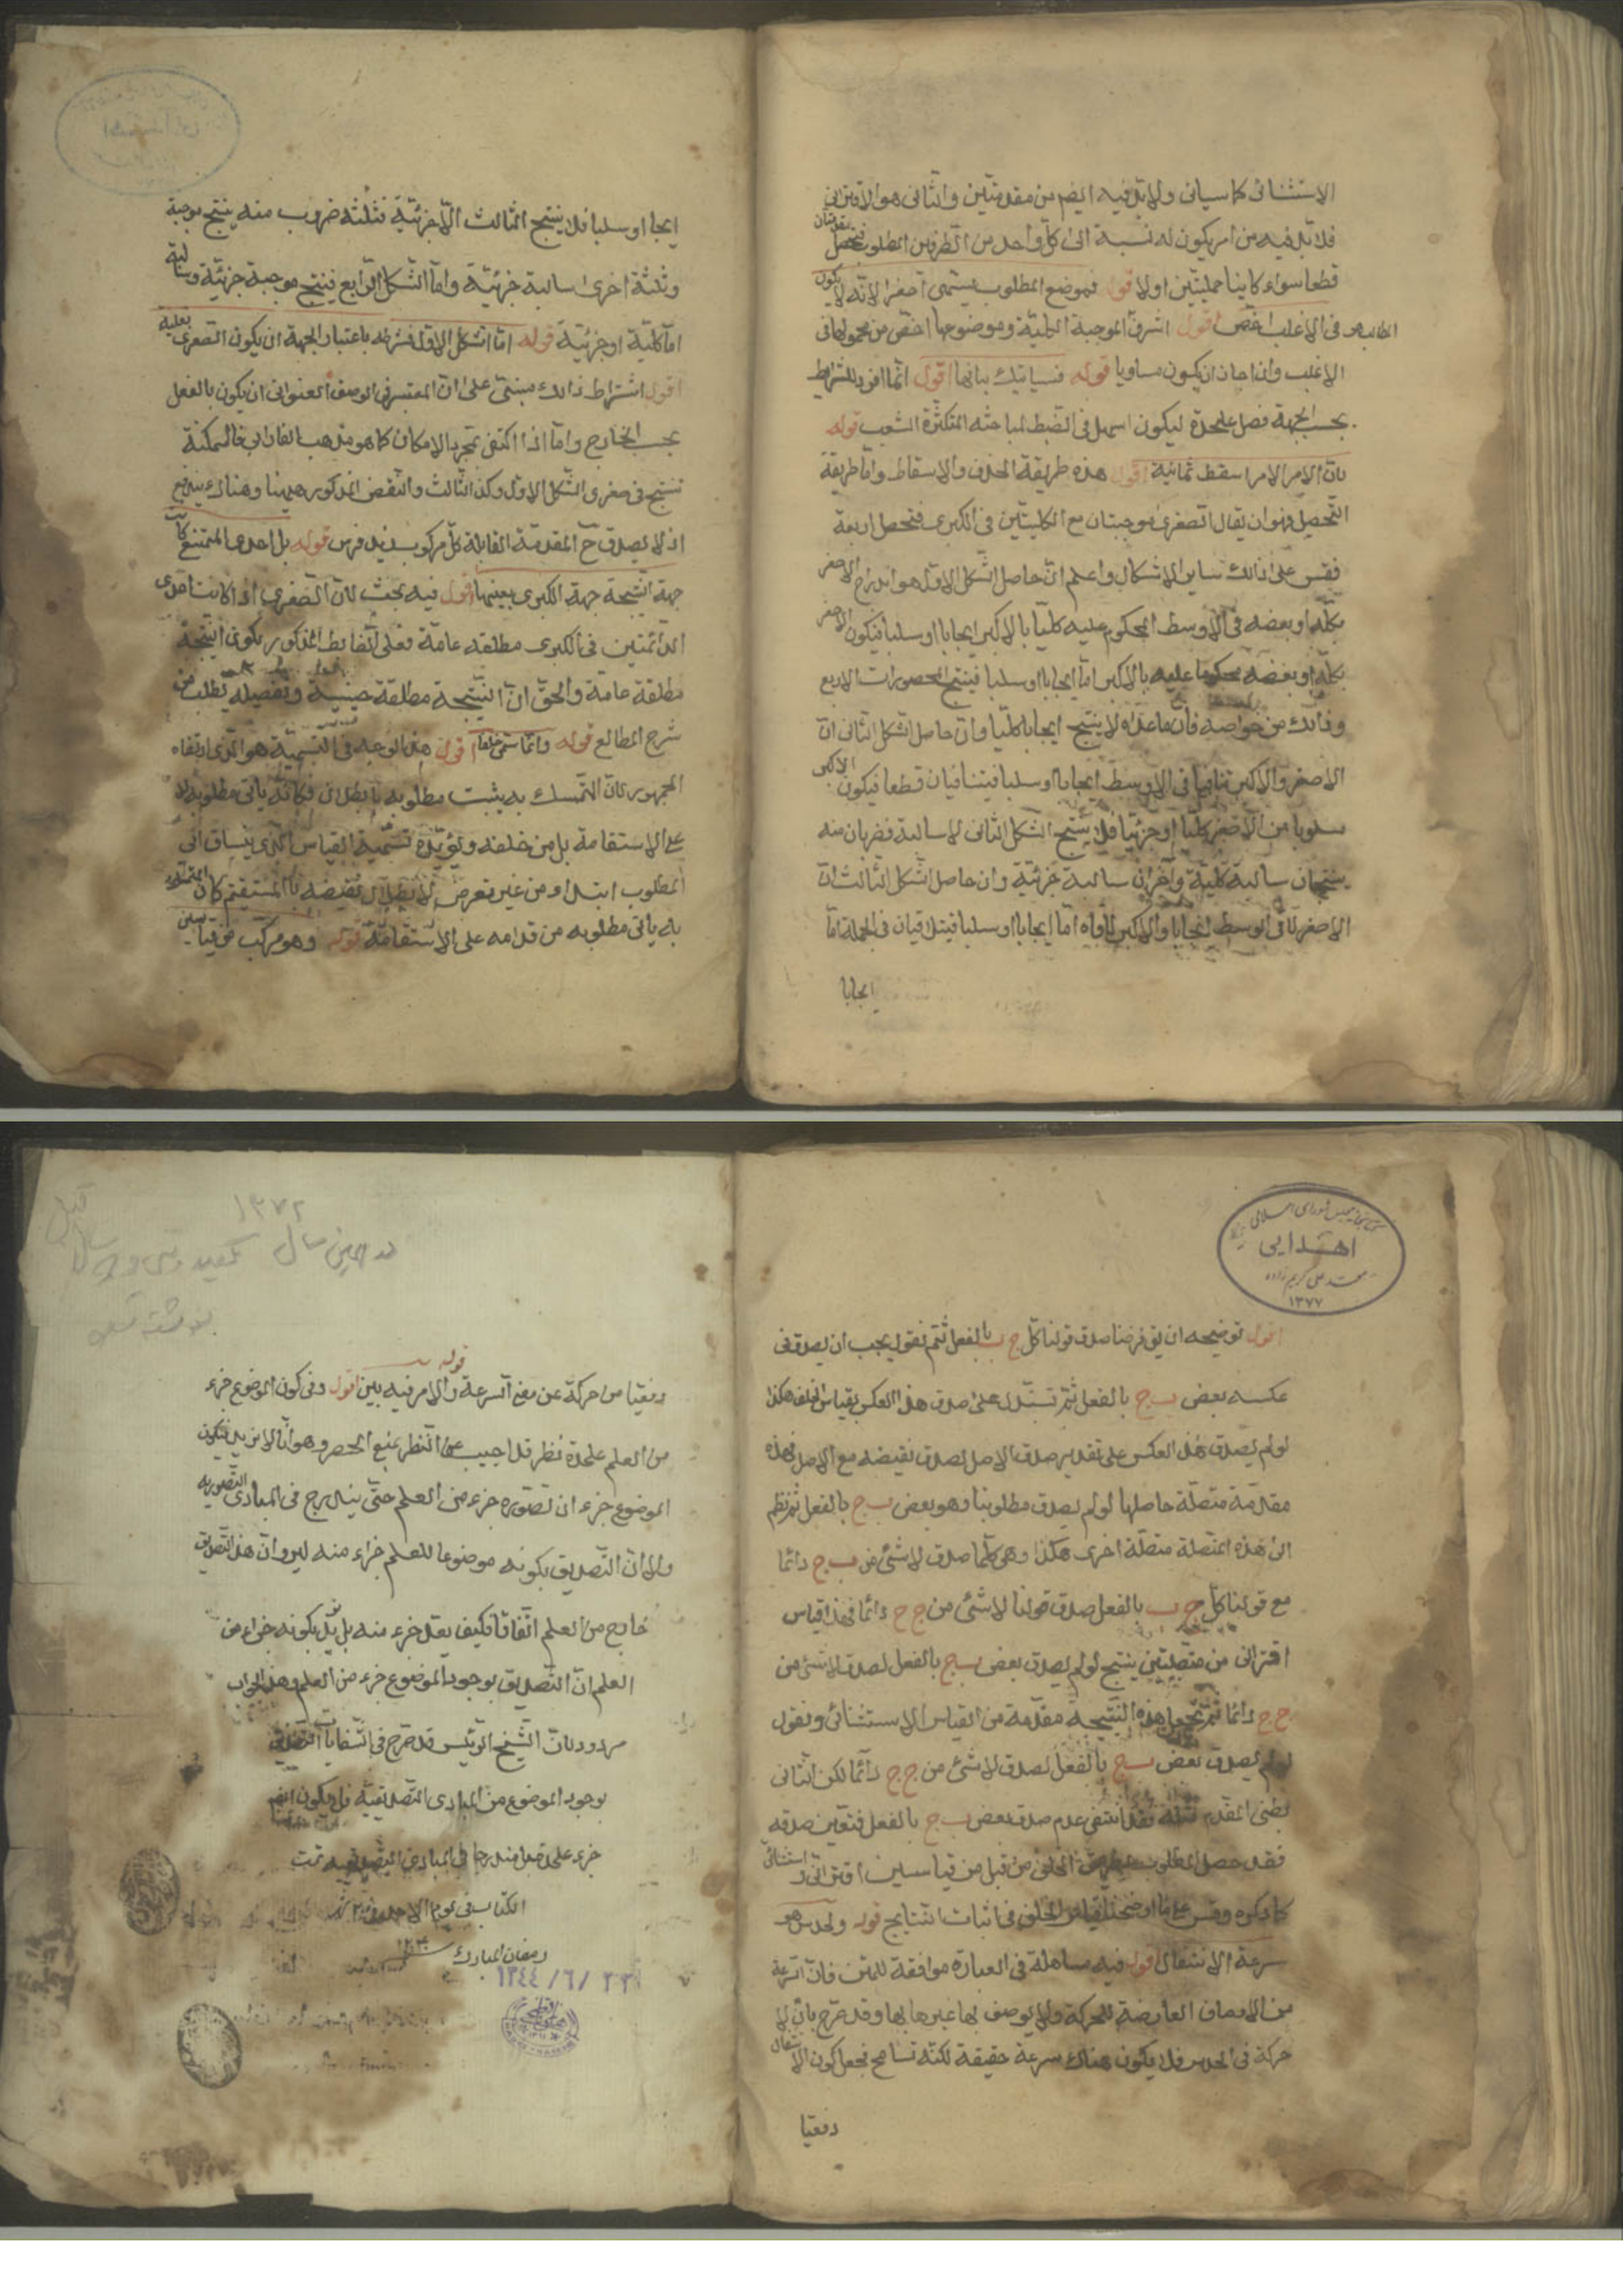 الاستثنائى كما سياتى ولابد فيه ايضم من مقدمتين والثانى هو الاقترانى
فلا بد فيه من امر يكون له نسبة الى كل واحد من الطرفين المطلوب فتحصل مقدمتان
قطعا سواء كانتا حمليتين اولا قوله فموضع المطلوب يسمى اصغر الانه لا يكون
الطالب هو فى الاغلب اخص اقول اشرف الموجبة الكلية وموضوعها اخص من محمولها فى
الاغلب وان اجاز ان يكون مساويا قوله فسياتيك بيانها اقول انما افرد للشرايط
بحسب الجهة فصل عليحدة ليكون اسهل فى الضبط لمباحثه المتكثرة الشعب قوله
بان الامر الامر اسقط ثمانية اقول هذه طريقة الحذف والاسقاط واما طريقة
التحصيل فهو ان يقال الصغرى موجبتان مع الكليتين فى الكبرى فتحصل اربعة
فقس على ذلك ساير الاشكال واعلم ان حاصل الشكل الاول هو اندراج الاصغر
بكله او بعضه فى الاوسط المحكوم عليه كليا بالاكبر ايجابا او سلبا فيكون الاصغر
بكله او بعضه محكوما عليه بالاكبر اما ايجابا او سلبا فينتج المحصورات الاربع
وذلك من خواصه فان ما عداه لا ينتج ايجابا كليا وان حاصل الشكل الثانى ان
الاصغر والاكبر تنافيا فى الاوسط ايجابا او سلبا فيتنافيان قطعا فيكون الاكبر
مسلوبا من الاصغر كليا او جزئيا فلا ينتج الشكل الثانى الا سالبة فضربان منه
ينتجان سالبة كلية واخران سالبة جزئية وان حاصل الشكل الثالث ان
الاصغر لاقى الاوسط ايجابا والاكبر لاقاه اما ايجابا او سلبا فيتلاقيان فى الجملة اما
ايجابا
ايجابا او سلبا فلا ينتج الثالث الا جزئية فثلثة ضروب منه ينتج موجبة
وثلثة اخرى سالبة جزئية واما الشكل الرابع فينتج موجبة جزئية وسالبة
اما كلية او جزئية قوله اما الشكل الاول فشرطه باعتبار الجهة ان يكون الصغرى فعلية
اقول اشتراط ذلك مبنى على ان المعتبر فى الوصف العنوانى ان يكون بالفعل
بحسب الخارج واما اذا اكتفى بمجرد الامكان كما هو مذهب الفارابى فالممكنة
تنتج فى صغرى الشكل الاول وكذا الثالث والنقض المذكور ههنا وهناك يندفع
اذ لا يصدق ح المقدمة القائلة كل مركوب زيد فرس قوله بل احدى
جهة النتيجة جهة الكبرى بعينها اقول فيه بحث لان الصغرى اذا كانت احدى
الدائمتين فى الكبرى مطلقه عامة فعلى الضابط المذكور يكون النتيجة
مطلقة عامة والحق ان النتيجة مطلقة حينية وتفصيله يطلب من
شرح المطالع قوله وانما سمى خلفا اقول هذا الوجه فى التسمية هو الذى ارتضاه
الجمهور لان المتمسك به يثبت مطلوبه بابطال فكانه ياتى مطلوبه لا
على الاستقامة بل من خلفه ويؤيده تسمية القياس الذى ينساق الى
المطلوب ابتداء من غير تعرض لابطال نقيضه بالمستقيم كان المتمسك
به ياتى مطلوبه من قدامه على الاستقامة قوله وهو مركب من قياسين
كتابخانه مجلس شوراى اسلامى
اهدايى
محمد على كريم زاده
١٣٧٧
اقول توضيحه ان يق فرضنا صدق قولنا كل ج ب بالفعل ثم نقول يجب ان يصدق فى
عكسه بعض ب ج بالفعل ثم نستدل على صدق هذا العكس بقياس الخلف هكذا
لو لم يصدق هذا العكس على تقدير صدق الاصل لصدق نقيضه مع الاصل فهذه
مقدمة متصلة حاصلها لو لم يصدق مطلوبنا وهو بعض ب ج بالفعل ثم نظم
الى هذه المتصلة متصلة اخرى هكذا وهى كلما صدق لا شئ من ب ج دائما
مع قولنا كل ج ب بالفعل صدق قولنا لا شئ من ج ج دائما فهذا قياس
اقترانى من متصلتين ينتج لو لم يصدق بعض ب ج بالفعل لصدق لا شئ من
ج ج دائما ثم نجعل هذه النتيجة مقدمة من القياس الاستثنائى ونقول
لو لم يصدق بعض ب ج بالفعل لصدق لا شئ من ج ج دائما لكن التالى
بطنى المقدم مثله فقد انتفى عدم صدق بعض ب ج بالفعل فتعين صدقه
فقد حصل المطلوب الخلف من قبل من قياسين اقترانى واستثنائى
كما ذكره وقس على ما اوضحنا قياس الخلف فى اثبات النتايج قوله والحدس هو
سرعة الانتقال اقول فيه مساهلة فى العبارة موافقة للمتن فان السرعة
من الاوصاف العارضة للحركة ولا يوصف بها غيرها بها وقد صرح بان لا
حركة فى الحدس فلا يكون هناك سرعة حقيقة لكنه تسامح فجعل كون الانتقال
دفعيا
١٣٧٢
در همين سال
قوله
دفعيا من حركة عن معنى السرعة والامر فيه بين اقول وفى كون الموضوع جزء
من العلم عليحدة نظر قد اجيب عن النظر بمنع الحصر وهو انا لا نريد بكون
الموضوع جزء ان تصوره جزء من العلم حتى يندرج فى المبادى التصوريه
ولا ان التصديق بكونه موضوعا للعلم جزء منه ليرد ان هذا التصديق
خارج من العلم اتفاقا فكيف يعد جزء منه بل نريد بكونه جزء من
العلم ان التصديق بوجود الموضوع جزء من العلم وهذا الجواب
مردود لان الشيخ الرئيس قد صرح فى الشفا بان التصديق
بوجود الموضوع من المبادى التصديقية فلا يكون ايضم
جزء على حدة مندرجا فى المبادى التصديقيه تمت
الكتاب فى يوم الاحد
رمضان المبارك
١٣٤٤/٦/٢٣